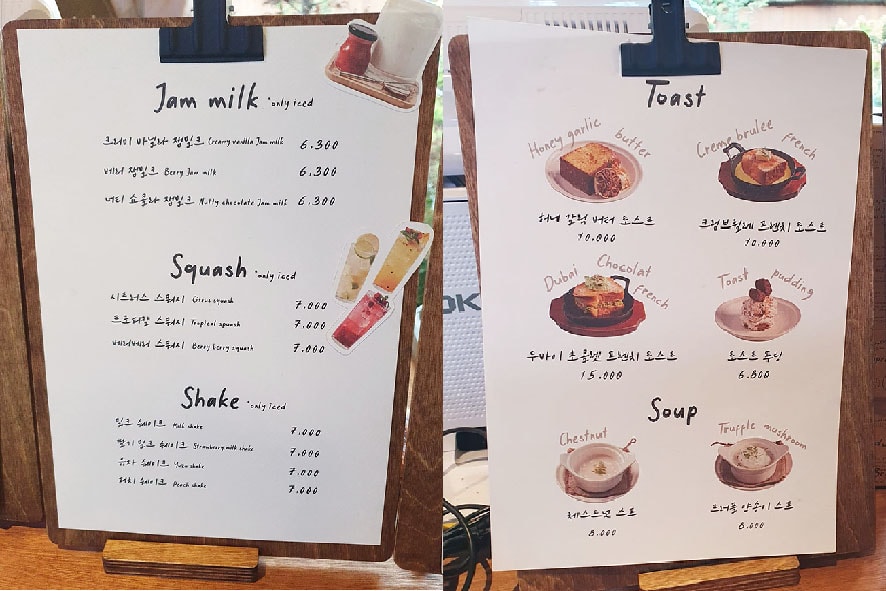 Jam milk *only iced
크리미 바닐라 잼밀크 Creamy vanilla Jam milk 6.300
베리 잼밀크 Berry Jam milk 6.300
너티 쇼콜라 잼밀크 Nutty chocolate Jam milk 6.300
Squash *only iced
시트러스 스쿼시 Citrus squash 7.000
트로피칼 스쿼시 Tropical squash 7.000
베리베리 스쿼시 Berry berry squash 7.000
Shake *only iced
밀크 쉐이크 Milk shake 7.000
딸기 밀크 쉐이크 Strawberry milk shake 7.000
유자 쉐이크 Yuza shake 7.000
피치 쉐이크 Peach shake 7.000
Toast
Honey garlic butter
허니 갈릭 버터 토스트
10.000
Creme brulee french
크렘브륄레 프렌치 토스트
10.000
Dubai Chocolat french
두바이 초콜렛 프렌치 토스트
15.000
Toast pudding
토스트 푸딩
6.800
Soup
Chestnut
체스트넛 스프
8.000
Truffle mushroom
트러플 양송이 스프
8.000